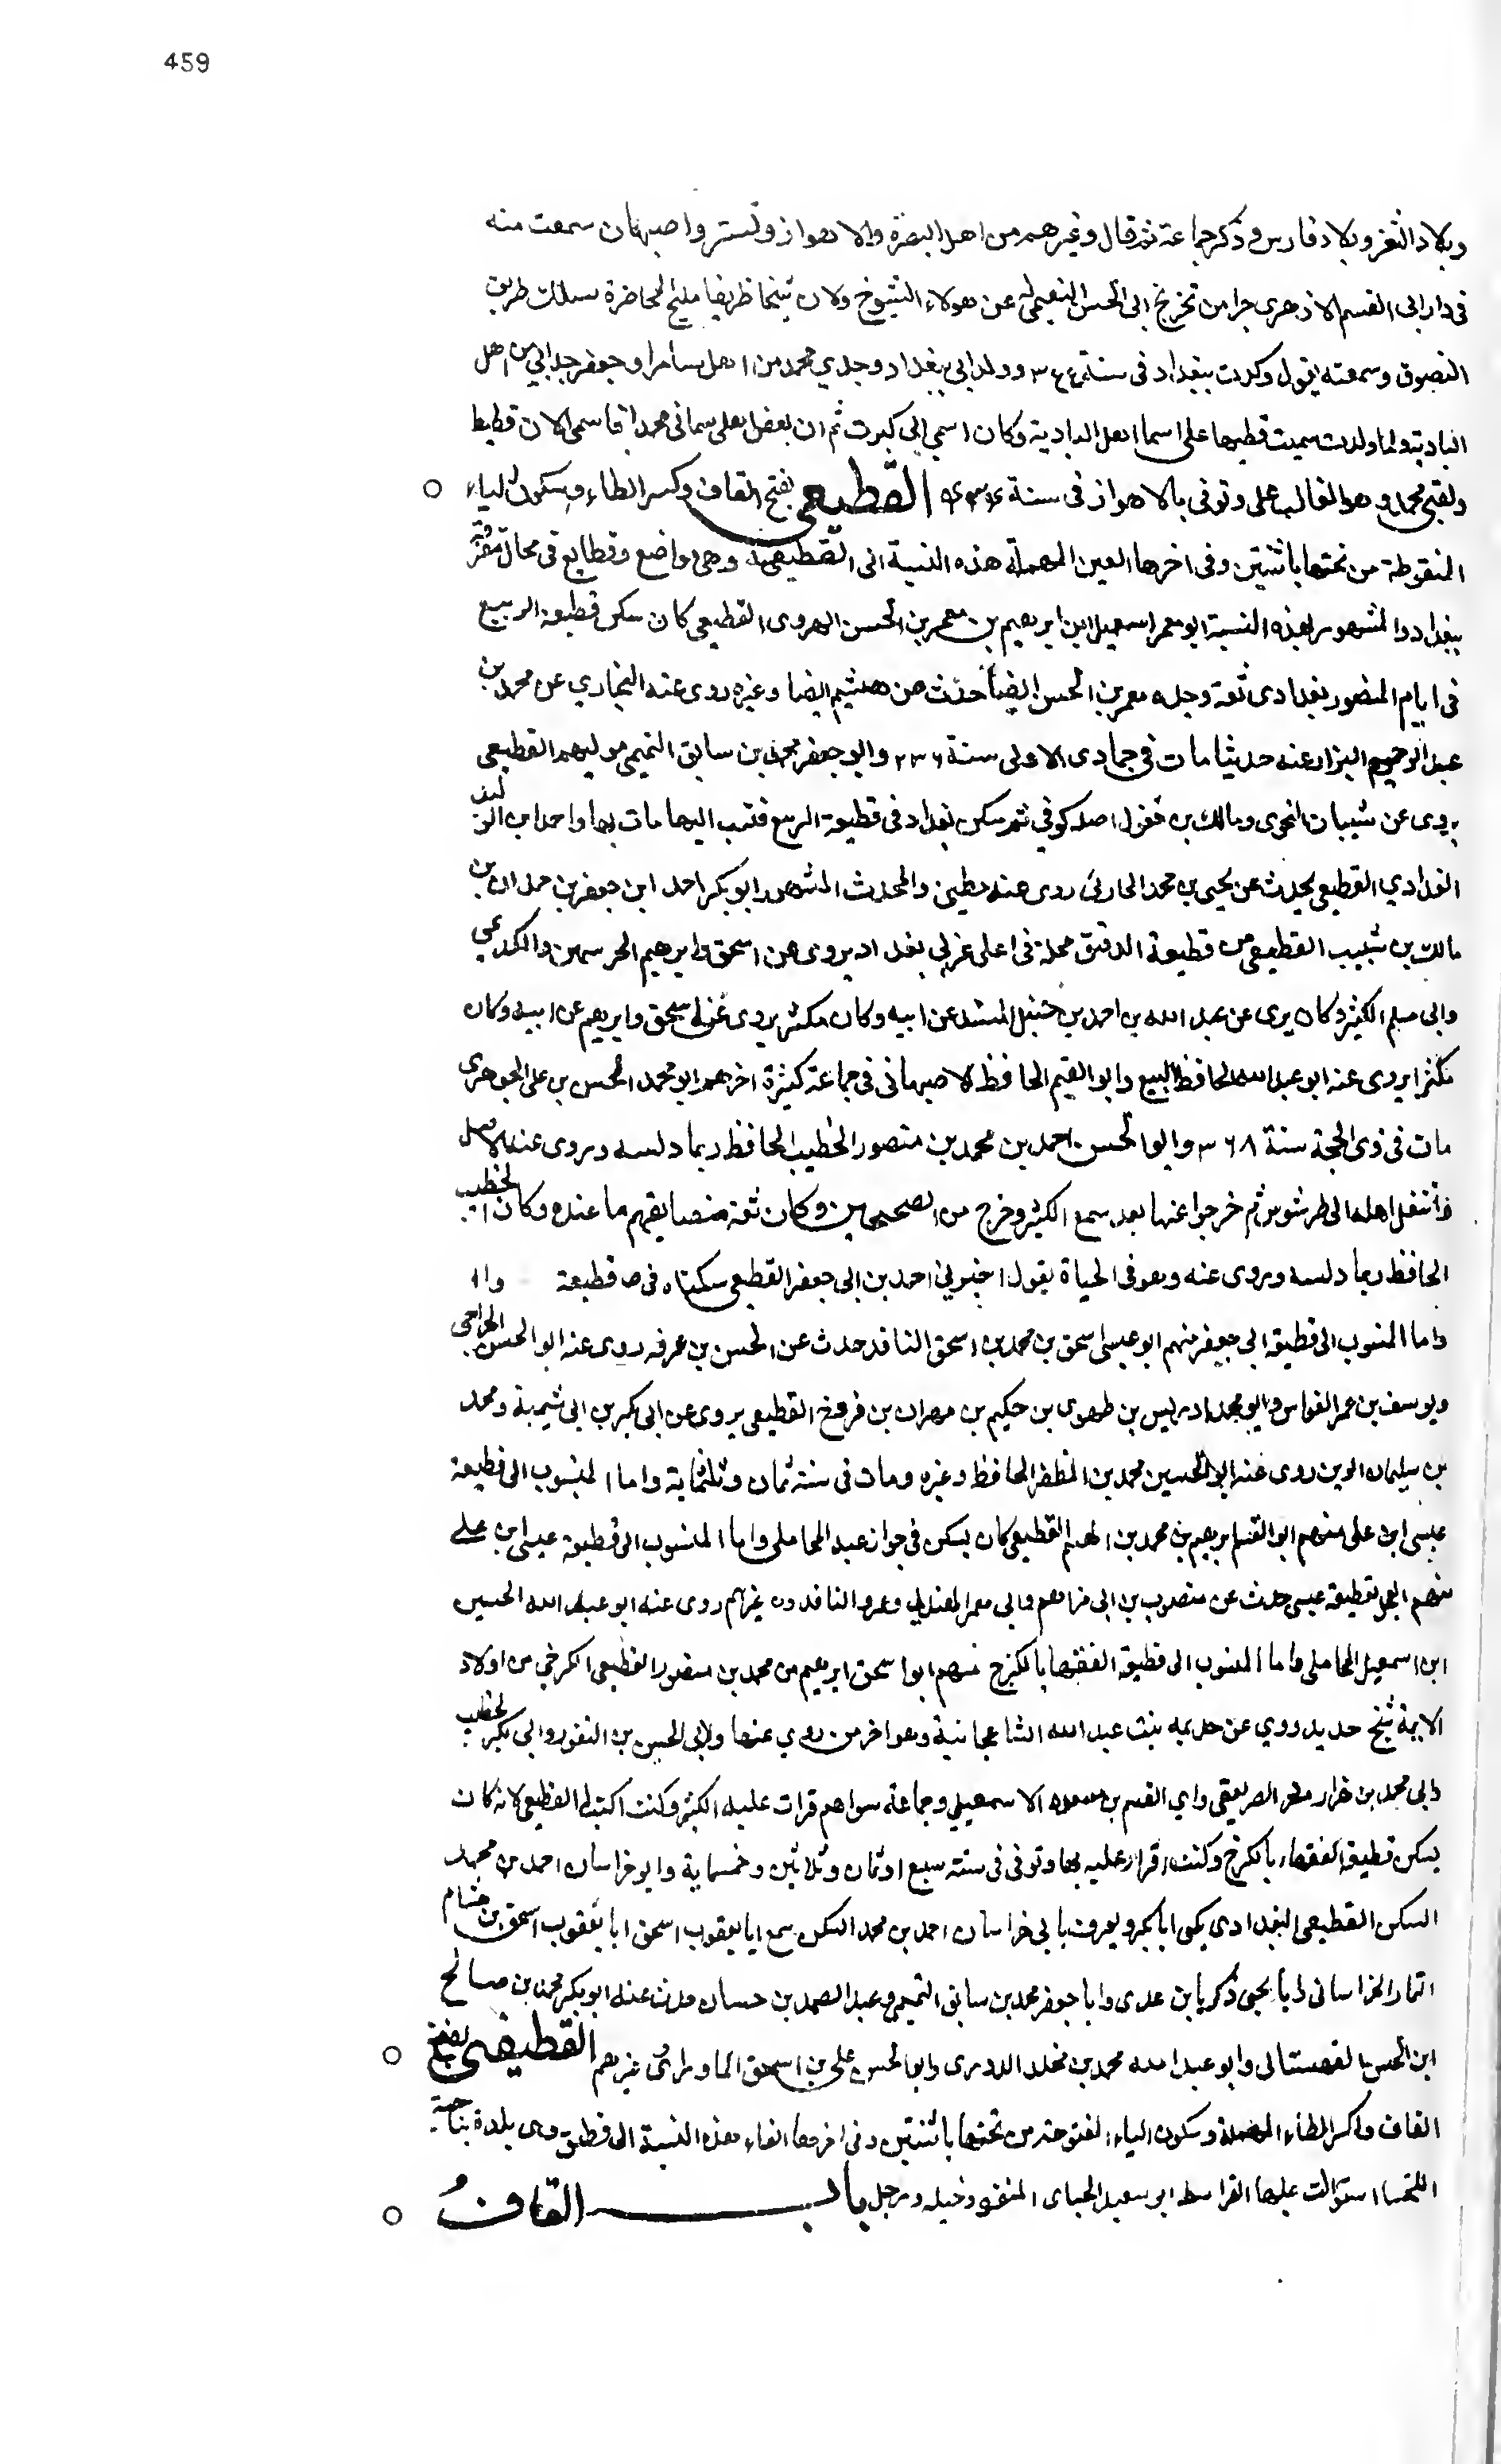 459
وبلاد الثغر وبلاد فارس وذكر جماعة ثم قال وغيرهم من اهل البصرة والاهواز وتستر واصبهان سمعت منه
فى دار ابى القسم الازهرى جزا من تخريج ابى الحسن النعيمى له عن هولاء الشيوخ وكان شيخا ظريفا مليح المحاضرة يسلك طريق
التصوف وسمعته يقول ولدت ببغداد فى سنة ٣٤٤ وولد ابى ببغداد وجدي محمد من اهل سامرا وجعفر جد ابي من اهل
البادية ولما ولدت سميت قطيطا على اسما اهل البادية وكان اسمي الى كبرت ثم ان بعض اهلى سمانى محمدا فاسمى الان قطيط
ولقبى محمد وهو الغالب على وتوفى بالاهواز فى سنة القطيعى بفتح القاف وكسر الطاء وسكون الياء
المنقوطة من تحتها باثنتين وفى اخرها العين المهملة هذه النسبة الى القطيعة وهى مواضع وقطايع فى محال متفرقة
ببغداد والمشهور بهذه النسبة ابو معمر اسمعيل ابن ابرهيم بن معمر بن الحسن الهروى القطيعى كان سكن قطيعة الربيع
فى ايام المنصور بغدادى ثقة وجده معمر بن الحسن ايضا حدث عن هشيم ايضا وغيره روى عنه البخاري عن محمد بن
عبد الرحيم البزار عنه حديثا مات فى جمادى الاولى سنة ٢٣٦ وابو جعفر محمد بن سابق التميمى موليهم القطيعى
يروى عن شيبان النحوى ومالك بن مغول اصله كوفي ثم سكن بغداد فى قطيعة الربيع فنسب اليها مات بها واحمد ابن الوليد
البغدادي القطيعى يحدث عن يحيى بن محمد الحارثى روى عنه مطين والمحدث المشهور ابو بكر احمد ابن جعفر بن حمدان بن
مالك بن شبيب القطيعى من قطيعة الدقيق محلة فى اعلى غربى بغداد يروى عن اسحق وابرهيم الحربيين والكديمي
وابى مسلم الكثير وكان يروى عن عبد الله بن احمد بن حنبل المسند عن ابيه وكان مكثر يروى عنه اسحق وابرهيم عن ابيه وكان
مكثرا يروى عنه ابو عبد الله الحافظ البيع وابو القيم الحافظ الاصبهانى فى جماعة كثيرة اخرهم ابو محمد الحسن بن على الجوهرى
مات فى ذى الحجة سنة ٣٦٨ وابو الحسن احمد بن محمد بن منصور الخطيب الحافظ ربما دلسه وروى عنه الاصل
فانتقل اهله الى طرسوس ثم خرجوا عنها بعد سمع الكثير وخرج من الصحيحين وكان ثقة يفهم ما عنده وكان الخطيب
الحافظ ربما دلسه وروى عنه وهو فى الحياة يقول اخبرني احمد بن ابى جعفر القطيعى سكناه فى قطيعة
واما المنسوب الى قطيعة ابى جعفر منهم ابو عيسى اسحق بن محمد بن اسحق الناقد حدث عن الحسن بن عرفه روى عنه ابو الحسن الجراحى
ويوسف بن عمر القواس وابو محمد ادريس بن طهوى بن حكيم بن مهران بن فروخ القطيعى يروى عن ابى بكر بن ابى شيبة ومحمد
بن سليمان لوين روى عنه ابو الحسين محمد بن المظفر الحافظ وغيره ومات فى سنة ثمان وثلثماية واما المنسوب الى قطيعة
عيسى ابن على منهم ابو القسم ابرهيم بن محمد بن الهيثم القطيعى كان يسكن فى جوار عبيد المحاملى واما المنسوب الى قطيعة عيسى ابن على
منهم قطيعة عيسى حدث عن منصور بن ابى مزاحم وابى معمر الهذلي وعمرو الناقد وغيرهم روى عنه ابو عبد الله الحسين
ابن اسمعيل المحاملى واما المنسوب الى قطيعة الفقها بالكرخ منهم ابو اسحق ابرهيم بن محمد بن منصور القطيعى الكرخى من اولاد
الايمة شيخ حديد روي عن خديجه بنت عبد الله الشاهجانية وهو اخر من روي عنها ولابى الحسين بن النقور وابى بكر الخطيب
وابى محمد بن هزارمرد الصريفينى وابي القسم بن مسعده الاسمعيلي وجماعة سواهم قرات عليه الكثير وكنت اكتب له القطيعى لانه كان
يسكن قطيعة الفقهاء بالكرخ وكنت اقرا عليه بها وتوفى فى سنة سبع او ثمان وثلاثين وخمسماية وابو خراسان احمد بن محمد
السكن القطيعى البغدادى يكنى ابا بكر ويعرف بابى خراسان احمد بن محمد السكن سمع ابا يعقوب اسحق ابا يعقوب اسحق بن هشام
التمار الخراسانى وابا يحيى زكريا بن عدى وابا جعفر محمد بن سابق التميمى وعبد الصمد بن حسان حدث عنه ابو بكر محمد بن صالح
ابن الحسن القهستانى وابو عبد الله محمد بن مخلد الدورى وابو الحسن على بن اسحق المادراى وغيرهم القطيفى بفتح
القاف وكسر الطاء المهملة وسكون الياء المنقوطة من تحتها باثنتين وفى اخرها الفاء هذه النسبة الى قطيف وهى بلدة بناحية
الاحسا استولت عليها القرامطه ابو سعيد الجنابى باب القاف